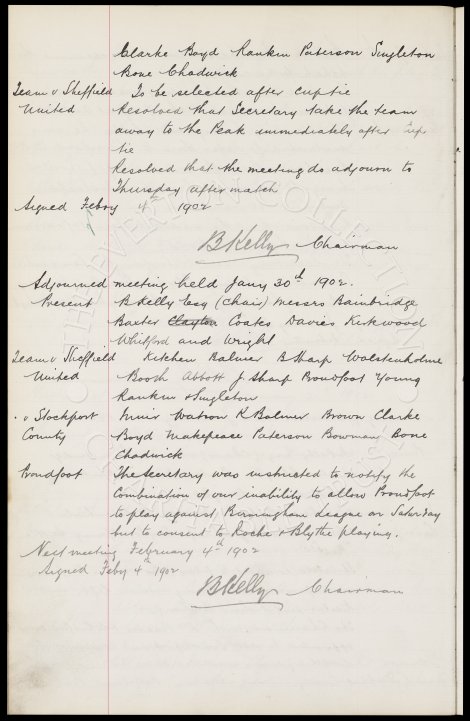 Clarke Boyd Rankin Paterson Singleton
Bone Chadwick
Team v Sheffield To be selected after cup tie
United Resolved that Secretary take the team
away to the Peak immediately after Cup
tie
Resolved that the meeting do adjourn to
Thursday after match
Signed Febry 4th 1902
BKelly Chairman
Adjourned meeting held Jany 30th 1902.
Present B Kelly Esq (Chair) Messrs Bainbridge
Baxter Clayton Coates Davies Kirkwood
Whitford and Wright
Team v Sheffield Kitchen Balmer B Sharp Wolstenholme
United Booth Abbott J Sharp Proudfoot Young
Rankin & Singleton
. v Stockport Muir Watson R Balmer Brown Clarke
County Boyd Makepeace Paterson Bowman Bone
Chadwick
Proudfoot The Secretary was instructed to notify the
Combination of our inability to allow Proudfoot
to play against Birmingham League on Saturday
but to consent to Roche & Blythe playing.
Next meeting February 4th 1902
Signed Feby 4th 1902
BKelly Chairman
THE EVERTON COLLECTION